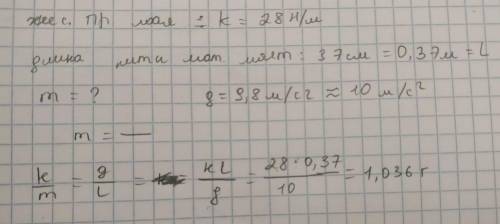 жес. пр маят = k = 28 Н/м
длина нити мат. маят: 37 см = 0,37 м = L
m = ? g = 9,8 м/с² ≈ 10 м/с²
m = —
k/m = g/L = kL/g = 28·0,37/10 = 1,036 г